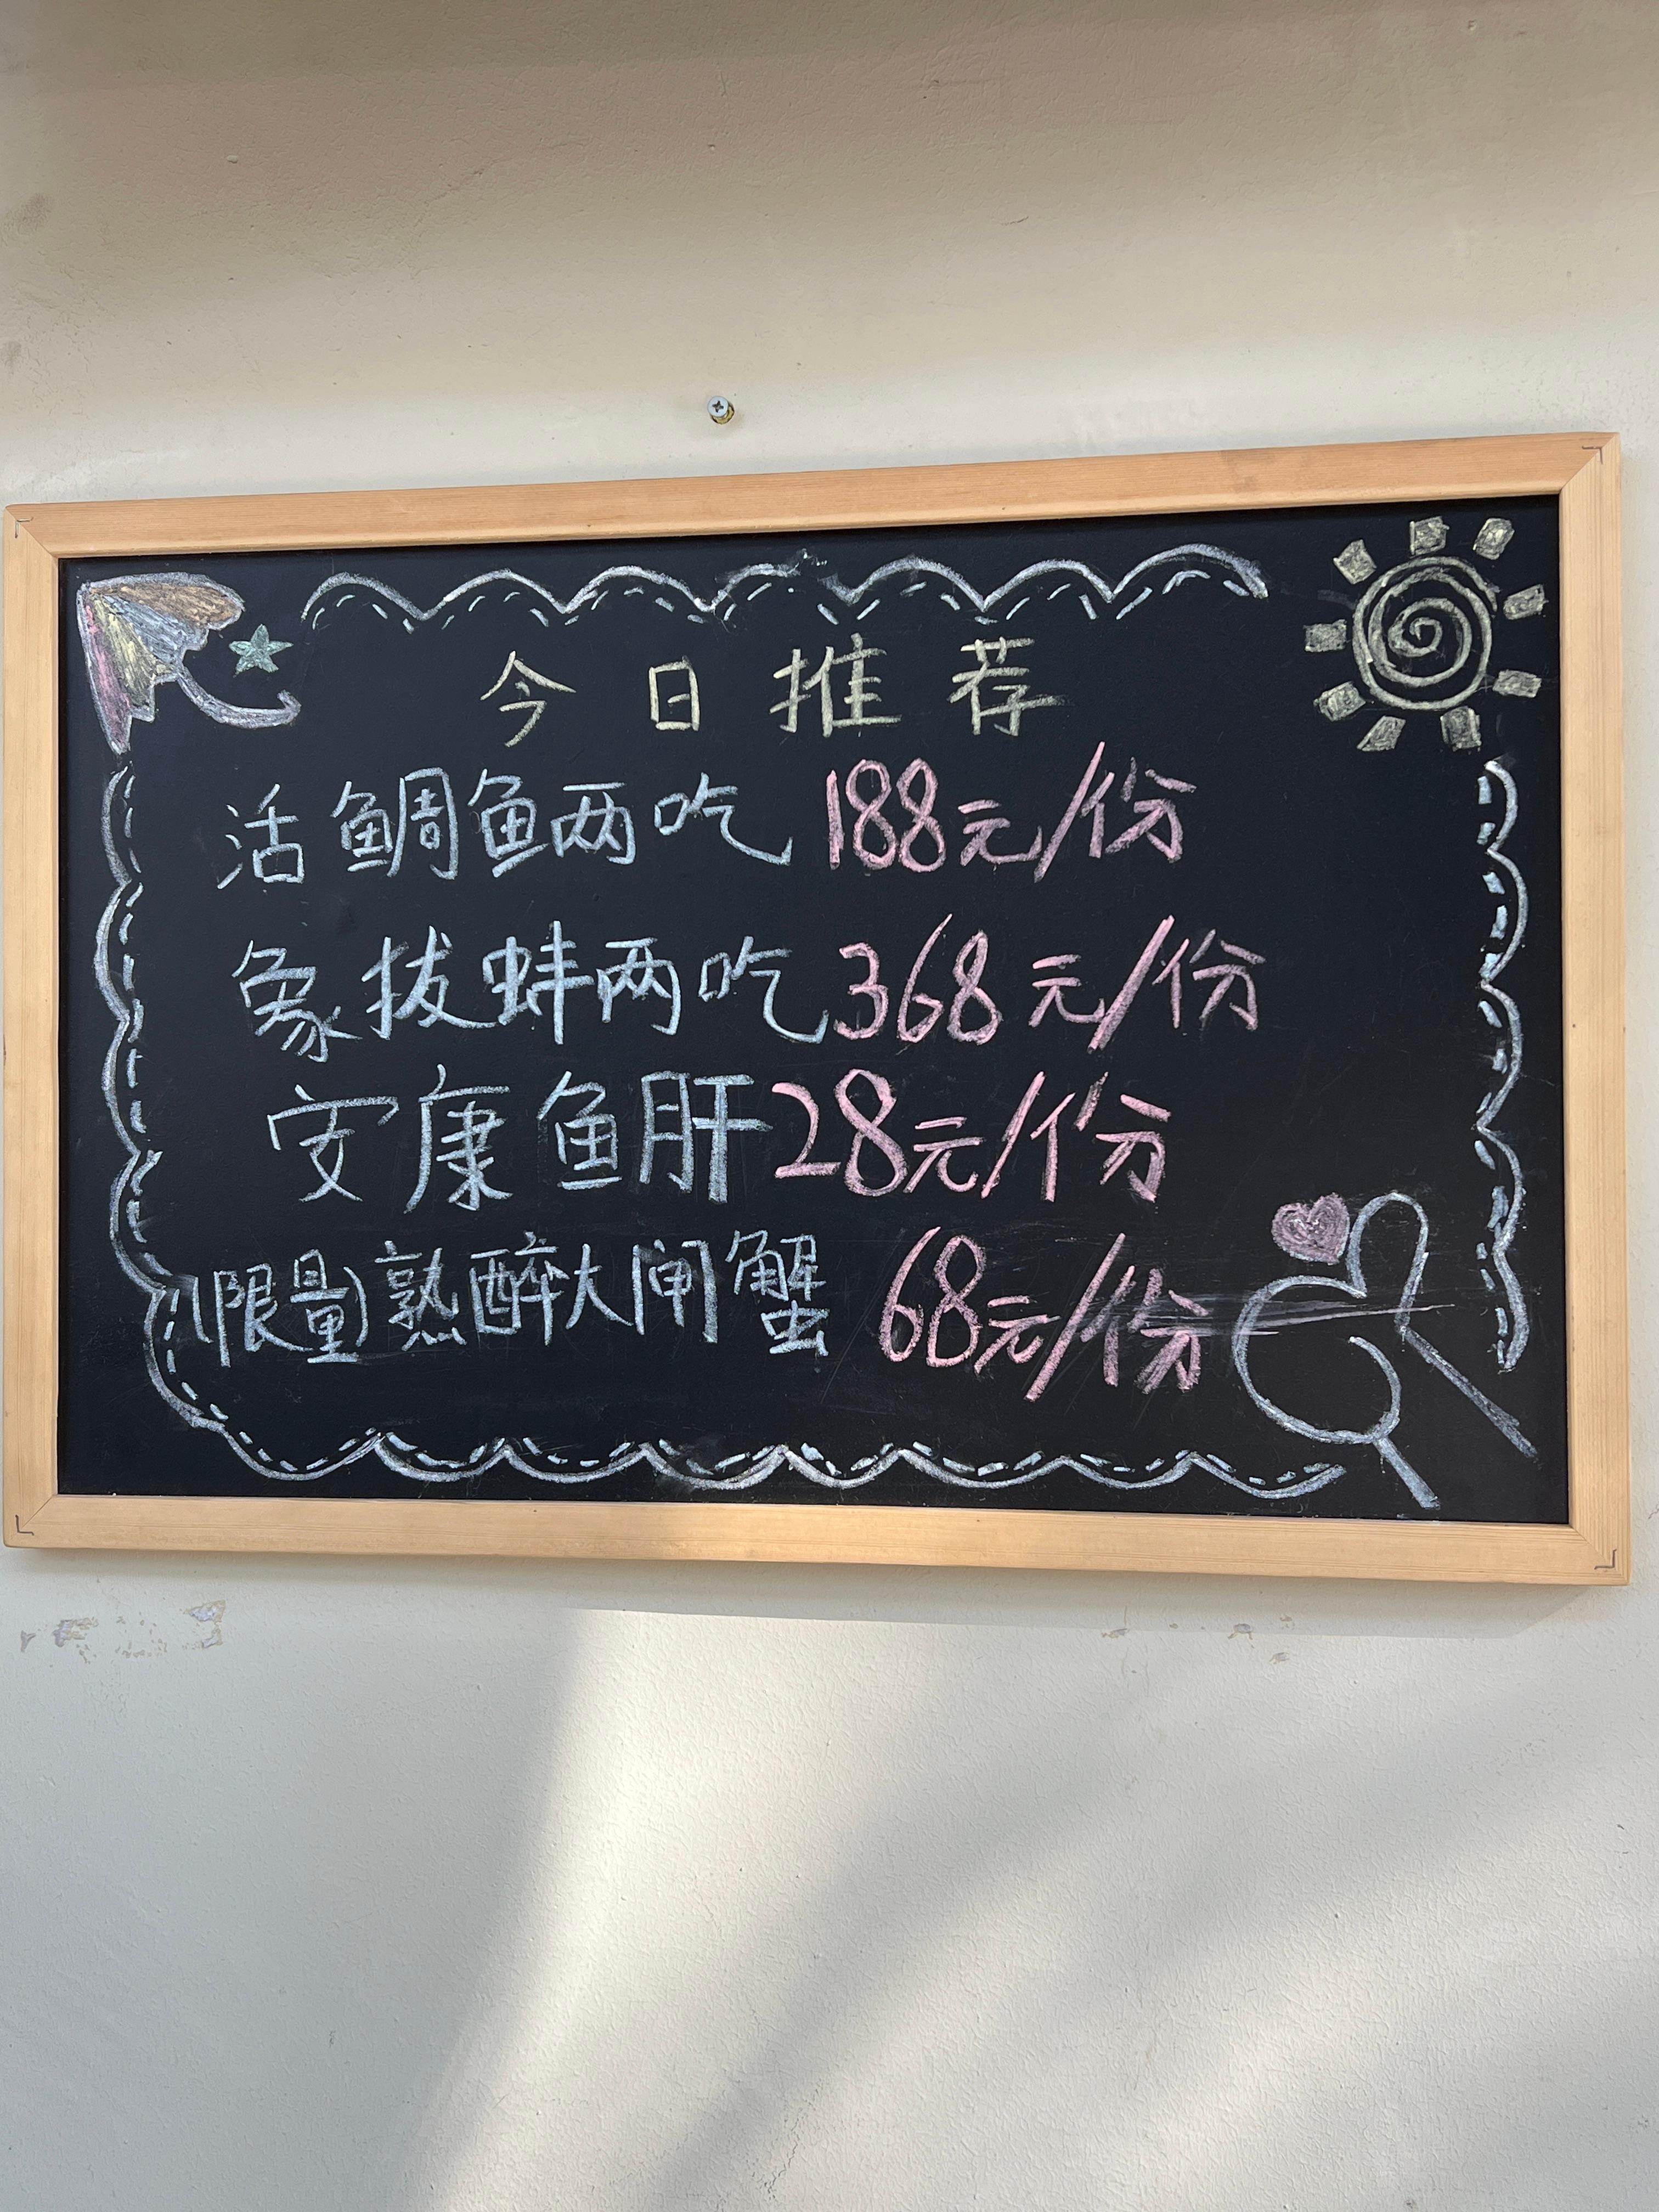 今日推荐
活鲷鱼两吃 188元/份
象拔蚌两吃 368元/份
安康鱼肝 28元/份
(限量)熟醉大闸蟹 68元/份